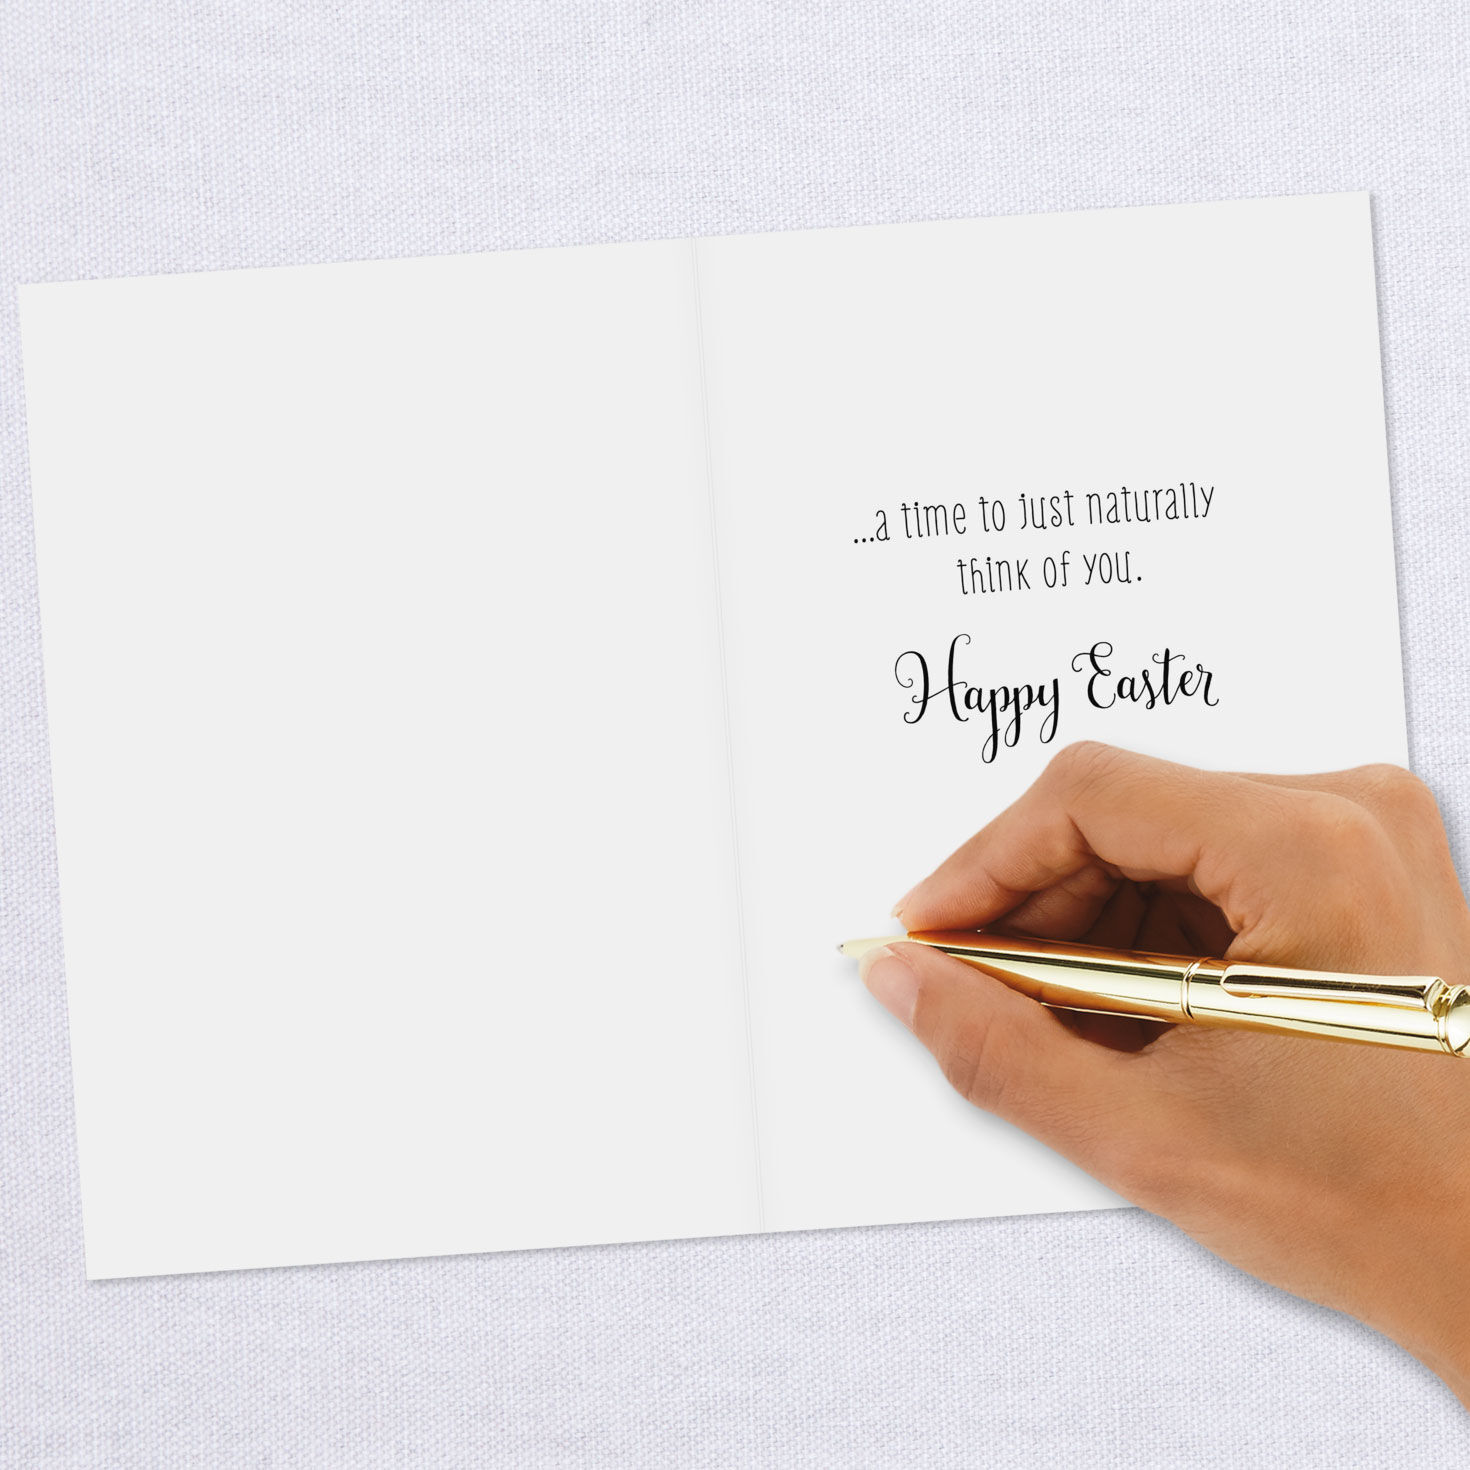 ...a time to just naturally
think of you.
Happy Easter